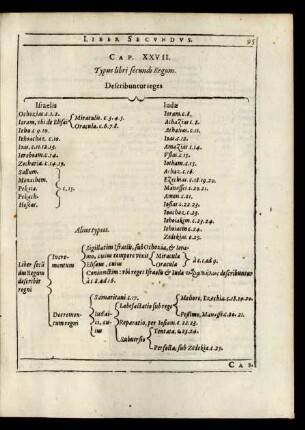 LIBER SECVNDVS. 95
CAP. XXVII.
Typus libri secundi Regum.
Describuntur reges
Israelis
Ochozias c.1.2.
Ioram, vbi de Elisæi
Miraculis. c.3.4.5.
Oracula. c.6.7.8.
Iehu c.9.10.
Iehoachaz. c.10.
Ioas. c.11.12.13.
Ieroboam c.14.
Zacharia. c.14.15.
Sallum.
Menachem.
Pekaia.
Pekach.
Hoseas.
c.15.
Iudæ
Ioram c.8.
Achazias c.8.
Athalias c.11.
Ioas c.12.
Amazias c.14.
Vsias. c.15.
Iotham. c.15.
Achaz c.16.
Ezechias c.18.19.20.
Manasses c.20.21.
Amon c.21.
Iosias c.22.23.
Ioachaz c.23.
Iehoiakim c.23.24.
Iehoiacin c.24.
Zedekias c.25.
Alius typus.
Liber secundus Regum describit regni
Incrementum
Sigillatim Israelis, sub Ochozia, & Ioramo, cuius tempore viuit Elisæus, cuius
Miracula
Oracula
à c.1. ad 9.
Coniunctim: vbi reges Israelis & Iuda describuntur à c.8. ad 16.
Decrementum regni
Samaritani c.17.
Iudaici, cuius
Labefactatio sub rege
Meliore, Ezechia c.18.19.20.
Pessimo, Manasse c.20.21.
Reparatio, per Iosiam c.22.23.
Subuersio
Tentata, c.23.24.
Perfecta, sub Zedekia c.25.
CAP.